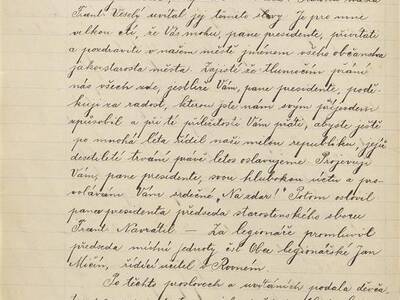 Frant. Veselý uvítal jej těmito slovy: Je pro mne
velkou ctí, že Vás mohu, pane presidente, přivítati
a pozdraviti v našem městě jménem všeho občanstva
jako starosta města. Zajisté že tlumočím přání
nás všech zde, jestliže Vám, pane presidente, podě-
kuji za radost, kterou jste nám svým příjezdem
způsobil a při té příležitosti Vám přáti, abyste ještě
po mnohá léta řídil naši milou republiku, jejíž
desítiletí trvání právě letos oslavujeme. Projevuji
Vám, pane presidente, svou hlubokou úctu a pro-
volávám Vám srdečné „Na zdar!" Potom oslovil
pana presidenta předseda starostenského sboru
Frant. Navrátil — Za legionáře promluvil
předseda místní jednoty čsl. Obce legionářské Jan
Mičín, řídící učitel v Rovném
Po těchto proslovech a uvítáních podala děvča-